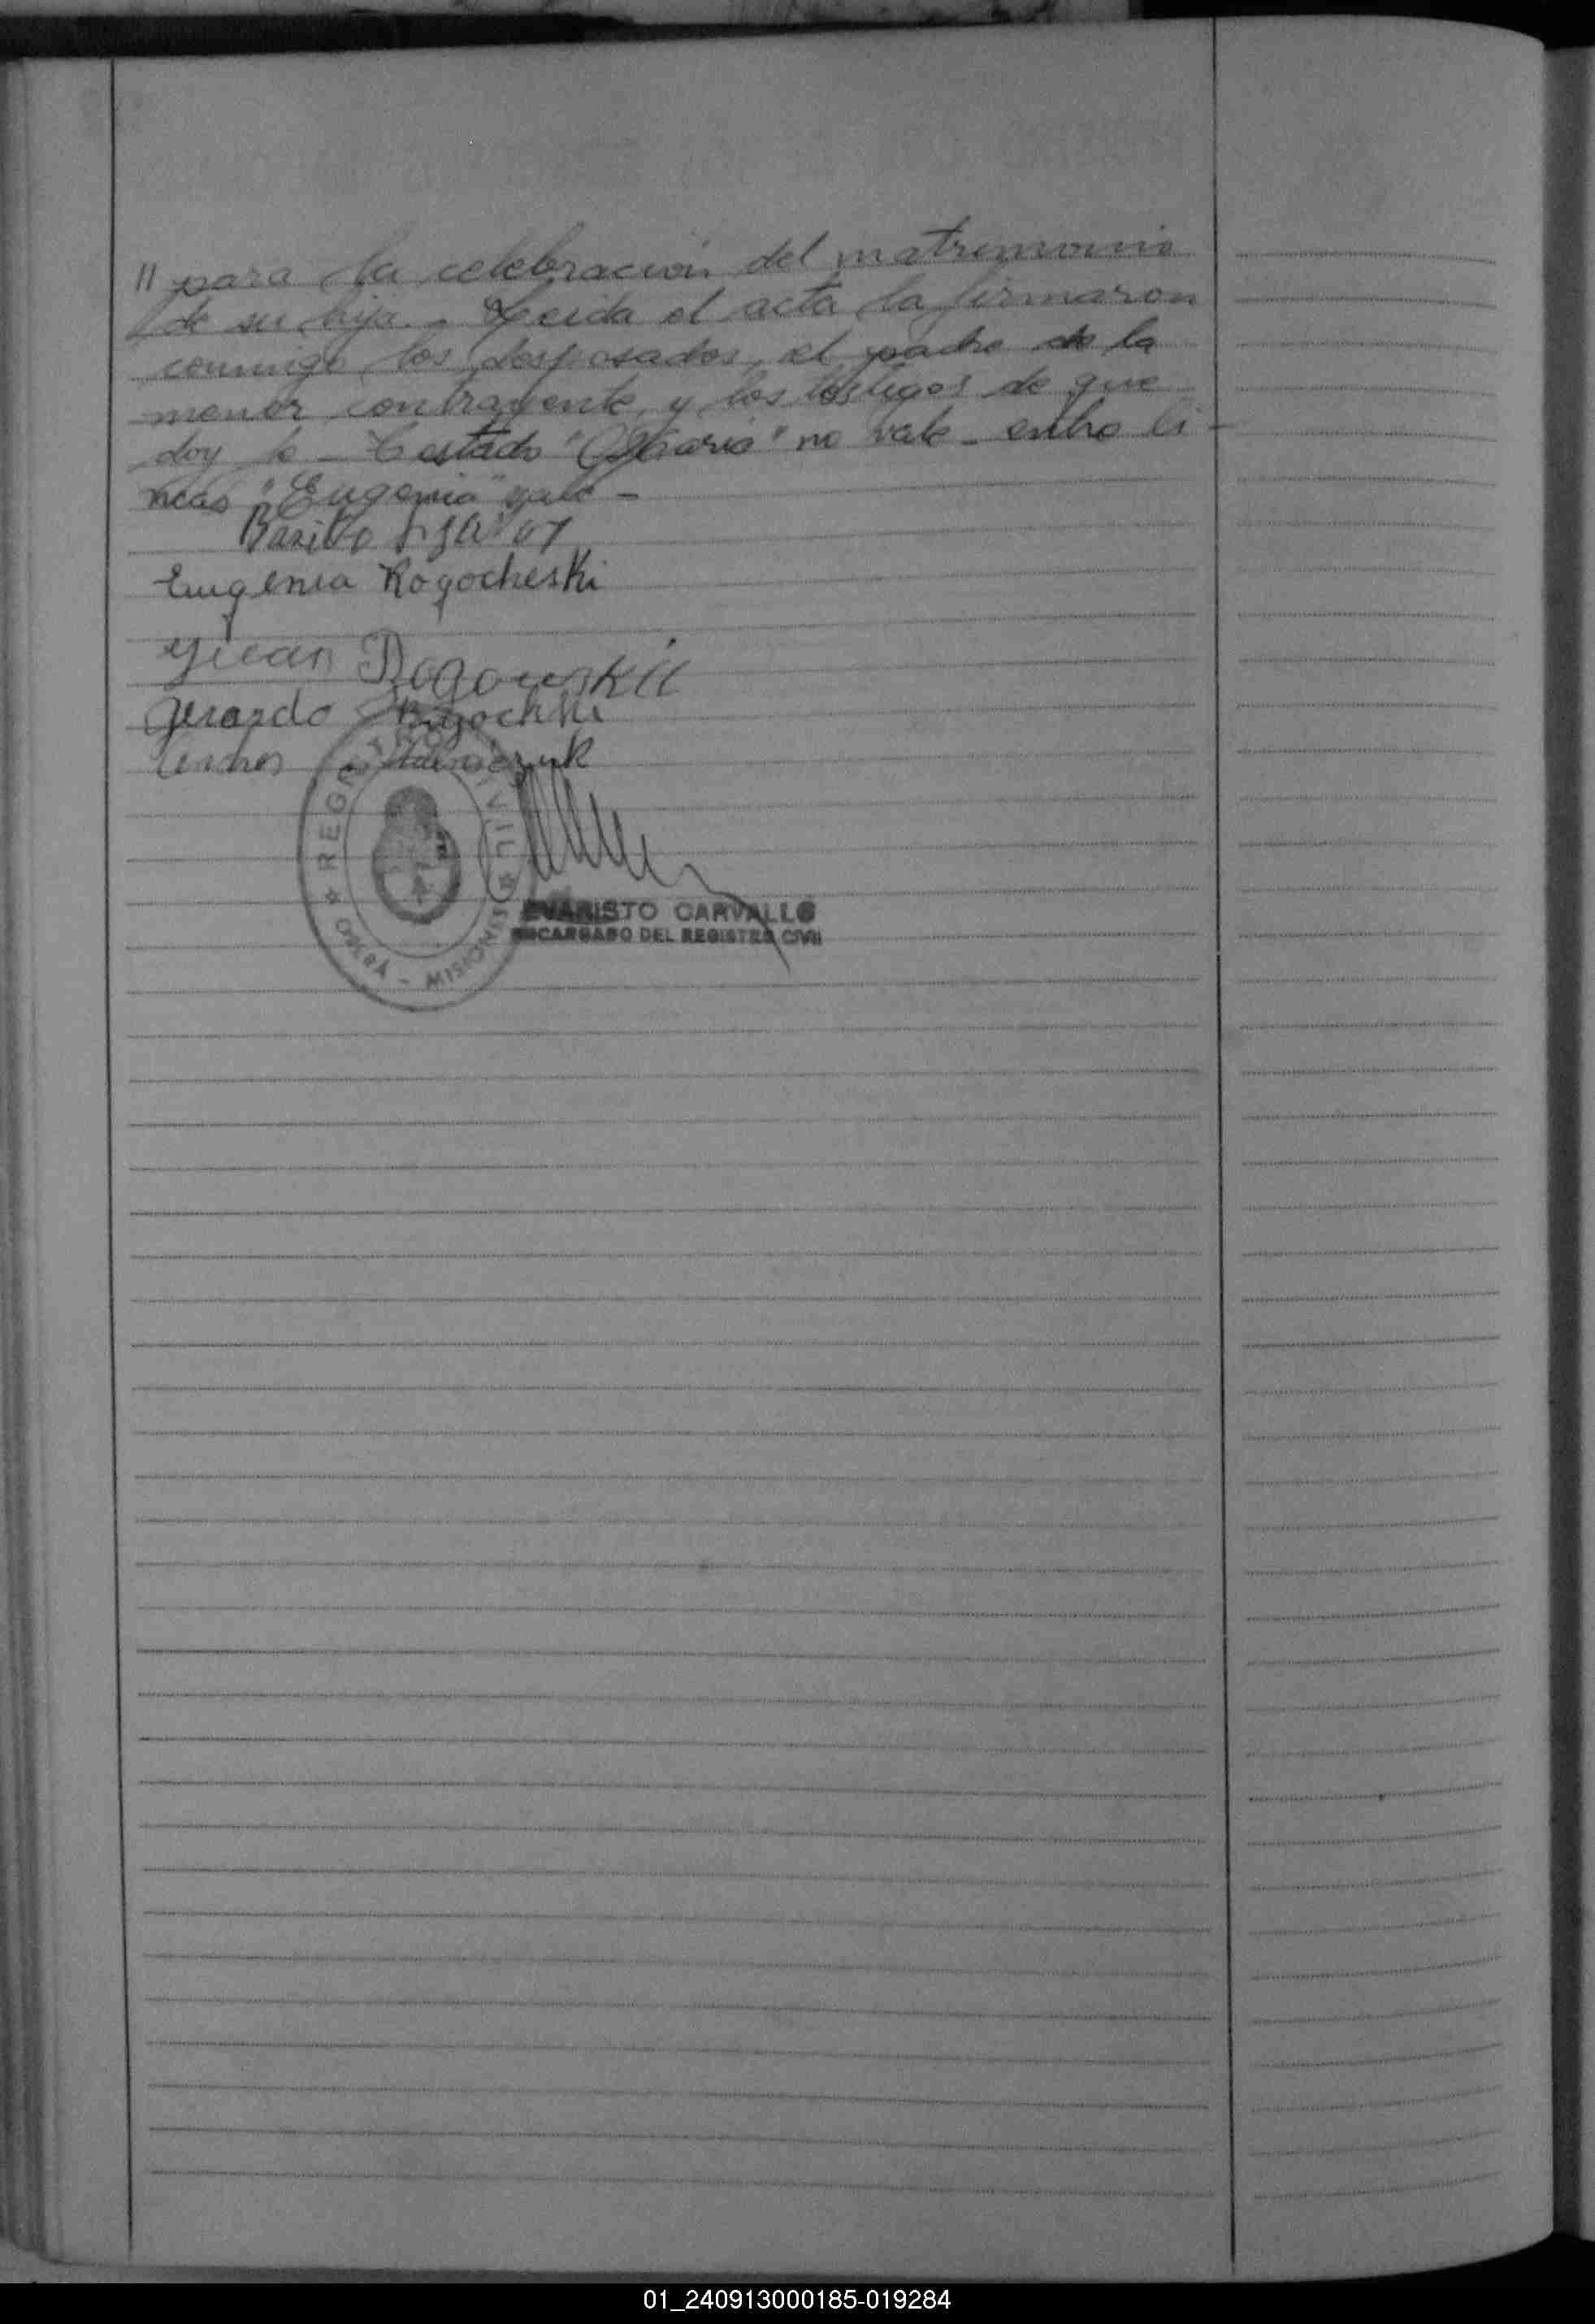 // para la celebración del matrimonio
de su hija. - Leida el acta la firmaron
conmigo los desposados, el padre de la
menor contrayente, y los testigos de que
doy fe - Testado "Maria" no vale - entre li-
neas "Eugenia" vale -
Basilio
Eugenia Rogocheski
Juan Rogowskii
Gerardo
REGISTRO CIVIL
OBERA - MISIONES
EVARISTO CARVALLO
ENCARGADO DEL REGISTRO CIVIL
01_240913000185-019284